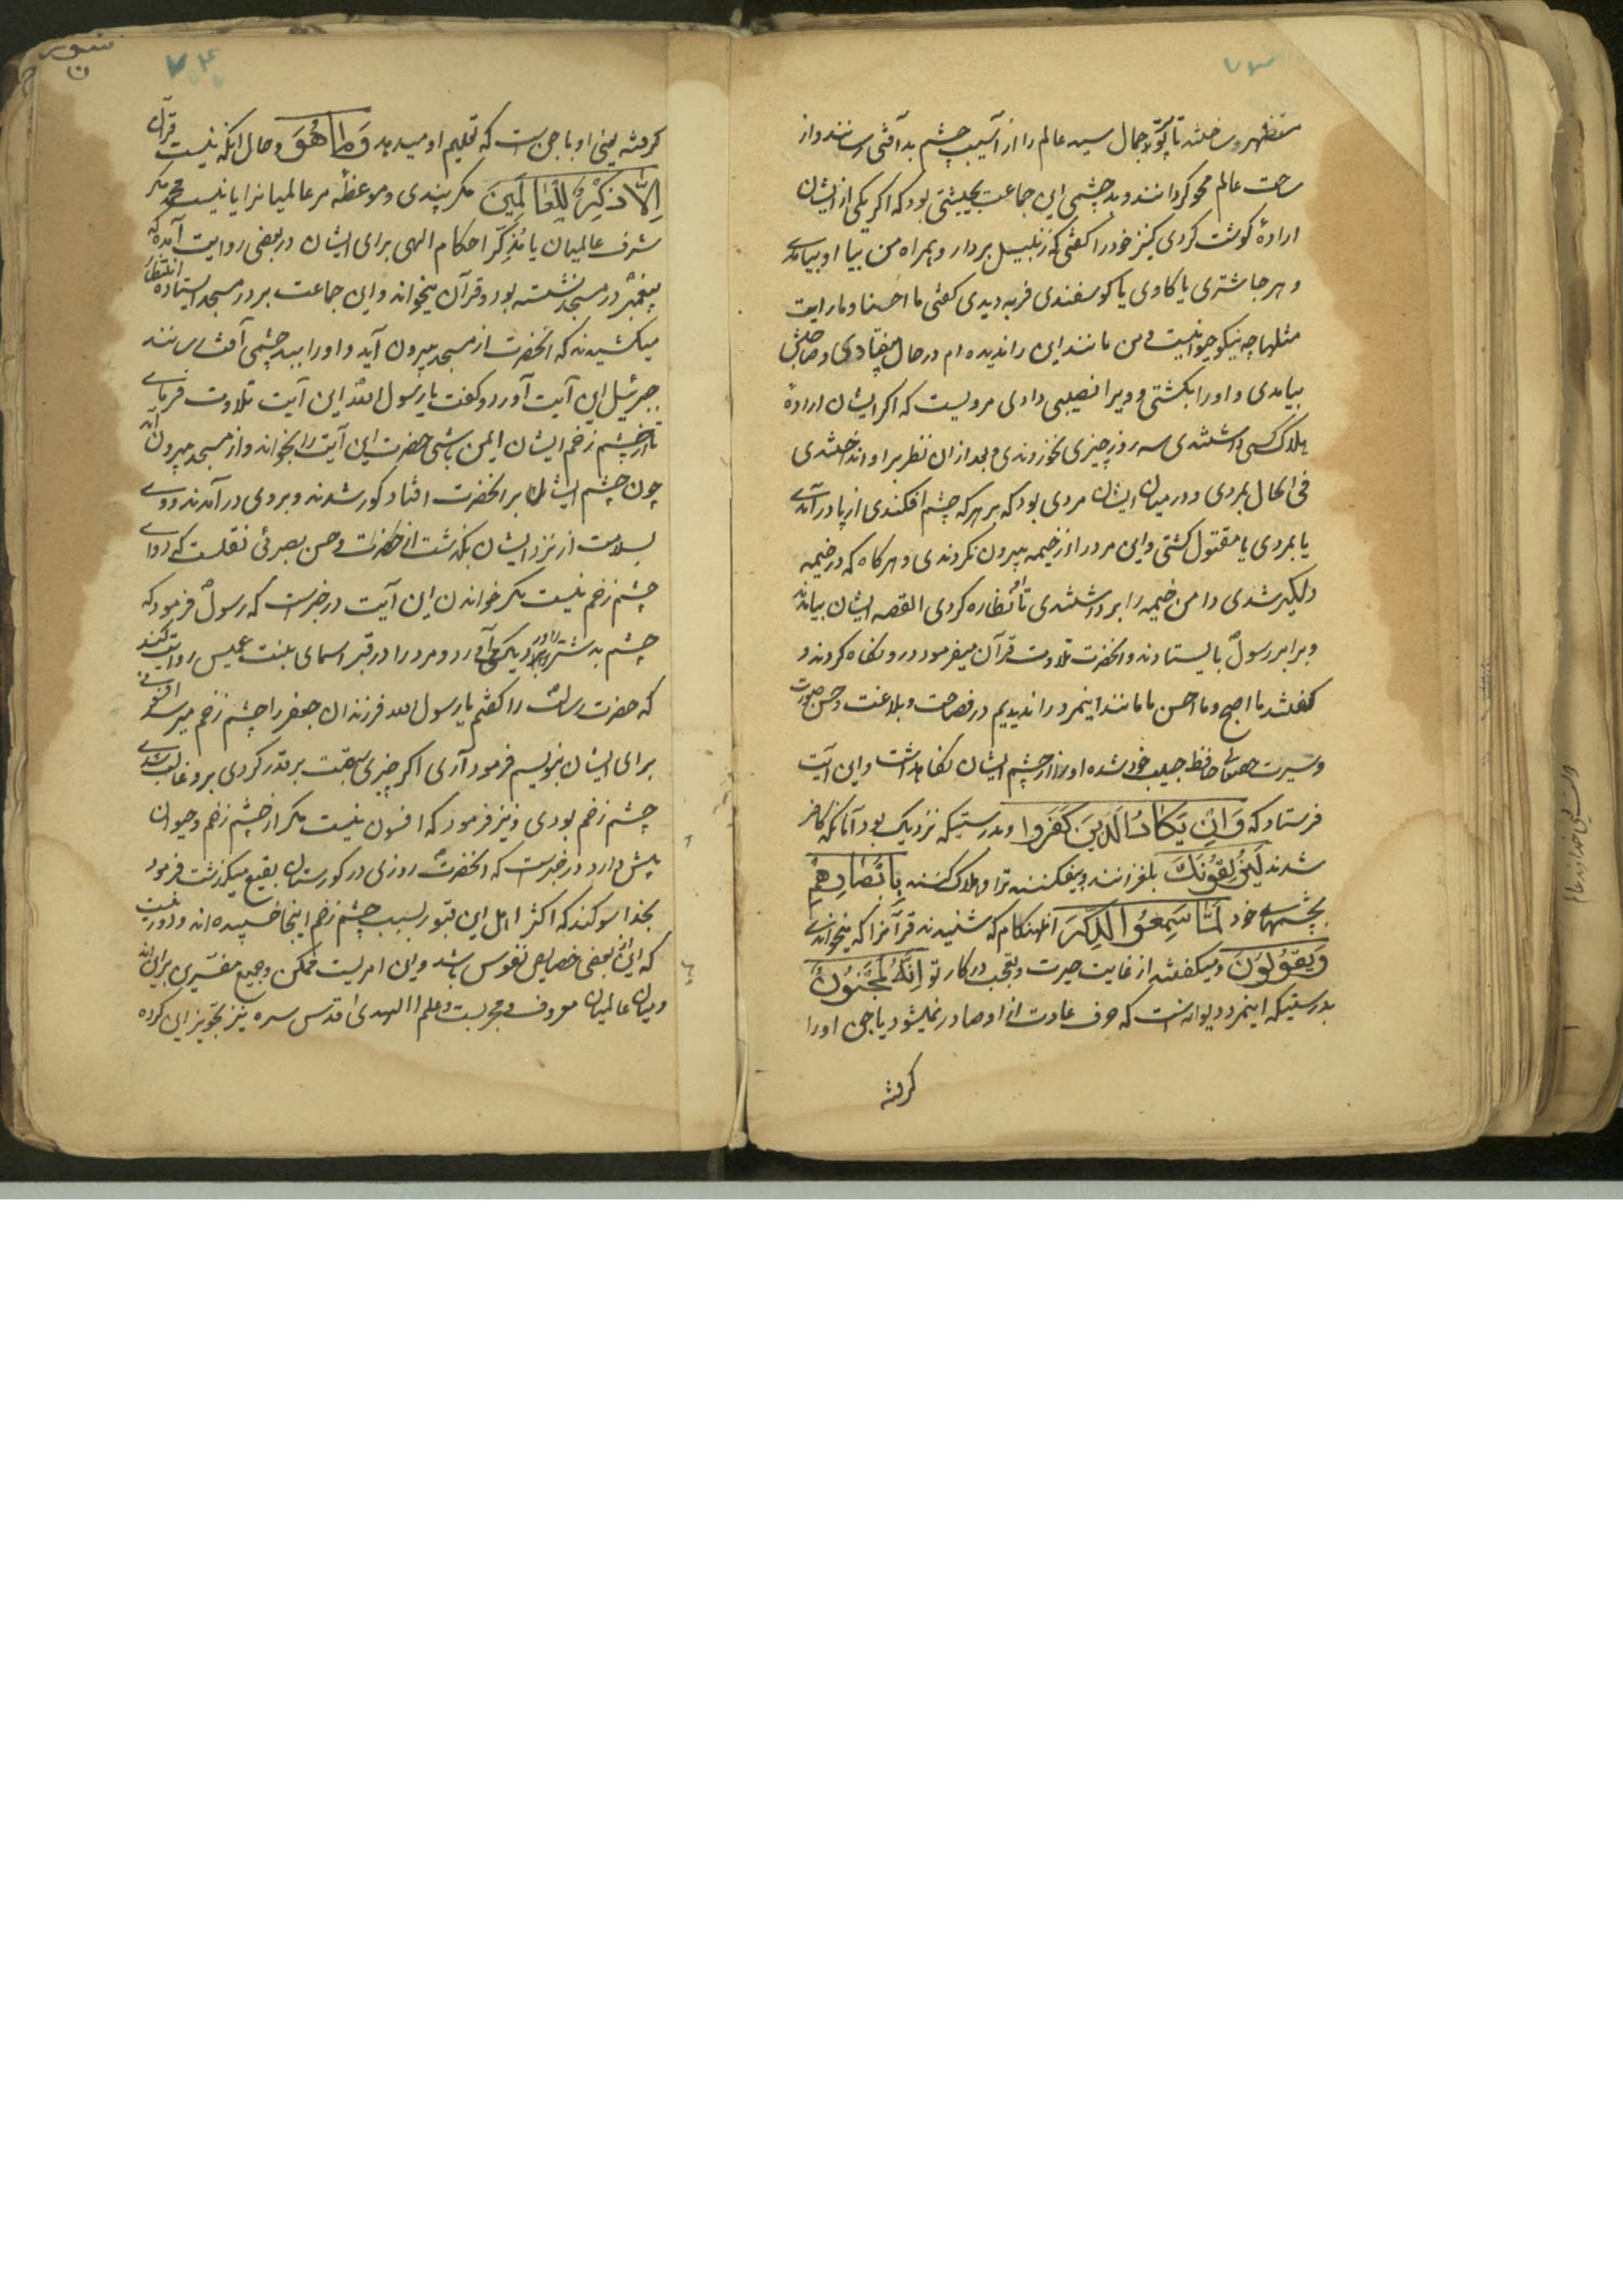 ۷۳
مستظهر ساختند تا پرتو جمال سید عالم را از آسیب چشم بد آفتی رسانند و از
ساحت عالم محو گردانند و بد چشمی این جماعت بحیثیتی بود که اکر یکی از ایشان
ارادهٔ کوشت کردی کنیز خود را کفتی که زنبیل بردار و همراه من بیا او بیامدی
و هر جا شتری یا کاوی یا کوسفندی فربه دیدی کفتی ما احسنها و ما رایت
مثلها چه نیکو حیوانیست و من مانند این را ندیده ام در حال بیفتادی و صاحبش
بیامدی و او را بکشتی و ویرا نصیبی دادی مرویست که اکر ایشان ارادهٔ
هلاک کسی داشتندی سه روز چیزی نخوردندی و بعد از ان نظر بر او انداختندی
فی الحال بمردی و در میان ایشان مردی بود که بر هر که چشم افکندی از پا در آمدی
یا بمردی یا مقتول کشتی و این مرد را از خیمه بیرون نکردندی و هرکاه که در خیمه
دلکیر شدی دامن خیمه را برداشتندی تا نظاره کردی القصه ایشان بیامدند
و برابر رسول بایستادند و انحضرت تلاوت قرآن میفرمود در و نکاه کردند و
کفتند ما افصح و ما احسن ما مانند اینمرد را ندیدیم در فصاحت و بلاغت و حسن صورت
و سیرت حقتعالی حافظ حبیب خود شده او را از چشم ایشان نکاهداشت و این آیت
فرستاد که وَاِنْ یَکَادُ الَّذِینَ کَفَرُوا و بدرستیکه نزدیک بود آنانکه کافر
شدند لَیُزْلِقُونَکَ بلغزانند و بیفکنند ترا و هلاک کنند بِاَبْصَارِهِمْ
بچشمهای خود لَمَّا سَمِعُوا الذِّکْرَ انهنکام که شنیدند قرآنرا که میخواندی
وَیَقُولُونَ و میکفتند از غایت حیرت و تعجب در کار تو اِنَّهُ لَمَجْنُونٌ
بدرستیکه اینمرد دیوانه است که حرف عادت از او صادر نمیشود یا جن او را
کرفته
۷۴
سوره
ن
کرفته یعنی او با جن است که تعلیم او میدهد وَمَا هُوَ و حال انکه نیست قرآن
اِلَّا ذِکْرٌ لِلْعَالَمِینَ مکر پندی و موعظهٔ مر عالمیانرا یا نیست محمد مکر
شرف عالمیان یا مُذَکِّر احکام الهی برای ایشان در بعضی روایت آمده که
پیغمبر در مسجد نشسته بود و قرآن میخواند و این جماعت بر در مسجد ایستاده انتظار
میکشیدند که انحضرت از مسجد بیرون آید و او را ببد چشمی آفت رسانند
جبرئیل این آیت آورد و کفت یا رسول الله این آیت تلاوت فرمای
تا از چشم زخم ایشان ایمن باشی حضرت این آیت را بخواند و از مسجد بیرون آمد
چون چشم ایشان بر انحضرت افتاد کور شدند و بروی در آمدند و وی
بسلامت از نزد ایشان بکذشت و حسن بصری نقلست که دوای
چشم زخم نیست مکر خواندن این آیت در خبر است که رسول فرمود که
چشم بد شتر را در دیک آورد و مرد را در قبر اسمای بنت عمیس روایت کند
که حضرت رسالت را کفتم یا رسول الله فرزندان جعفر را چشم زخم میرسد افسونی
برای ایشان بنویسم فرمود آری اکر چیزی سبقت بر قدر کردی برو غالب شدی
چشم زخم بودی و نیز فرمود که افسون نیست مکر از چشم زخم و حیوان
نیش دار و در خبر است که انحضرت روزی در کورستان بقیع میکذشت فرمود
بخدا سوکند که اکثر اهل این قبور بسبب چشم زخم اینجا خسپیده اند و دور نیست
که این بعضی خصایص نفوس باشد و این امریست ممکن و جمیع مفسرین براین اند
و میان عالمیان معروف و مجربست و علم الهدی قدس سره نیز تجویز این کرده